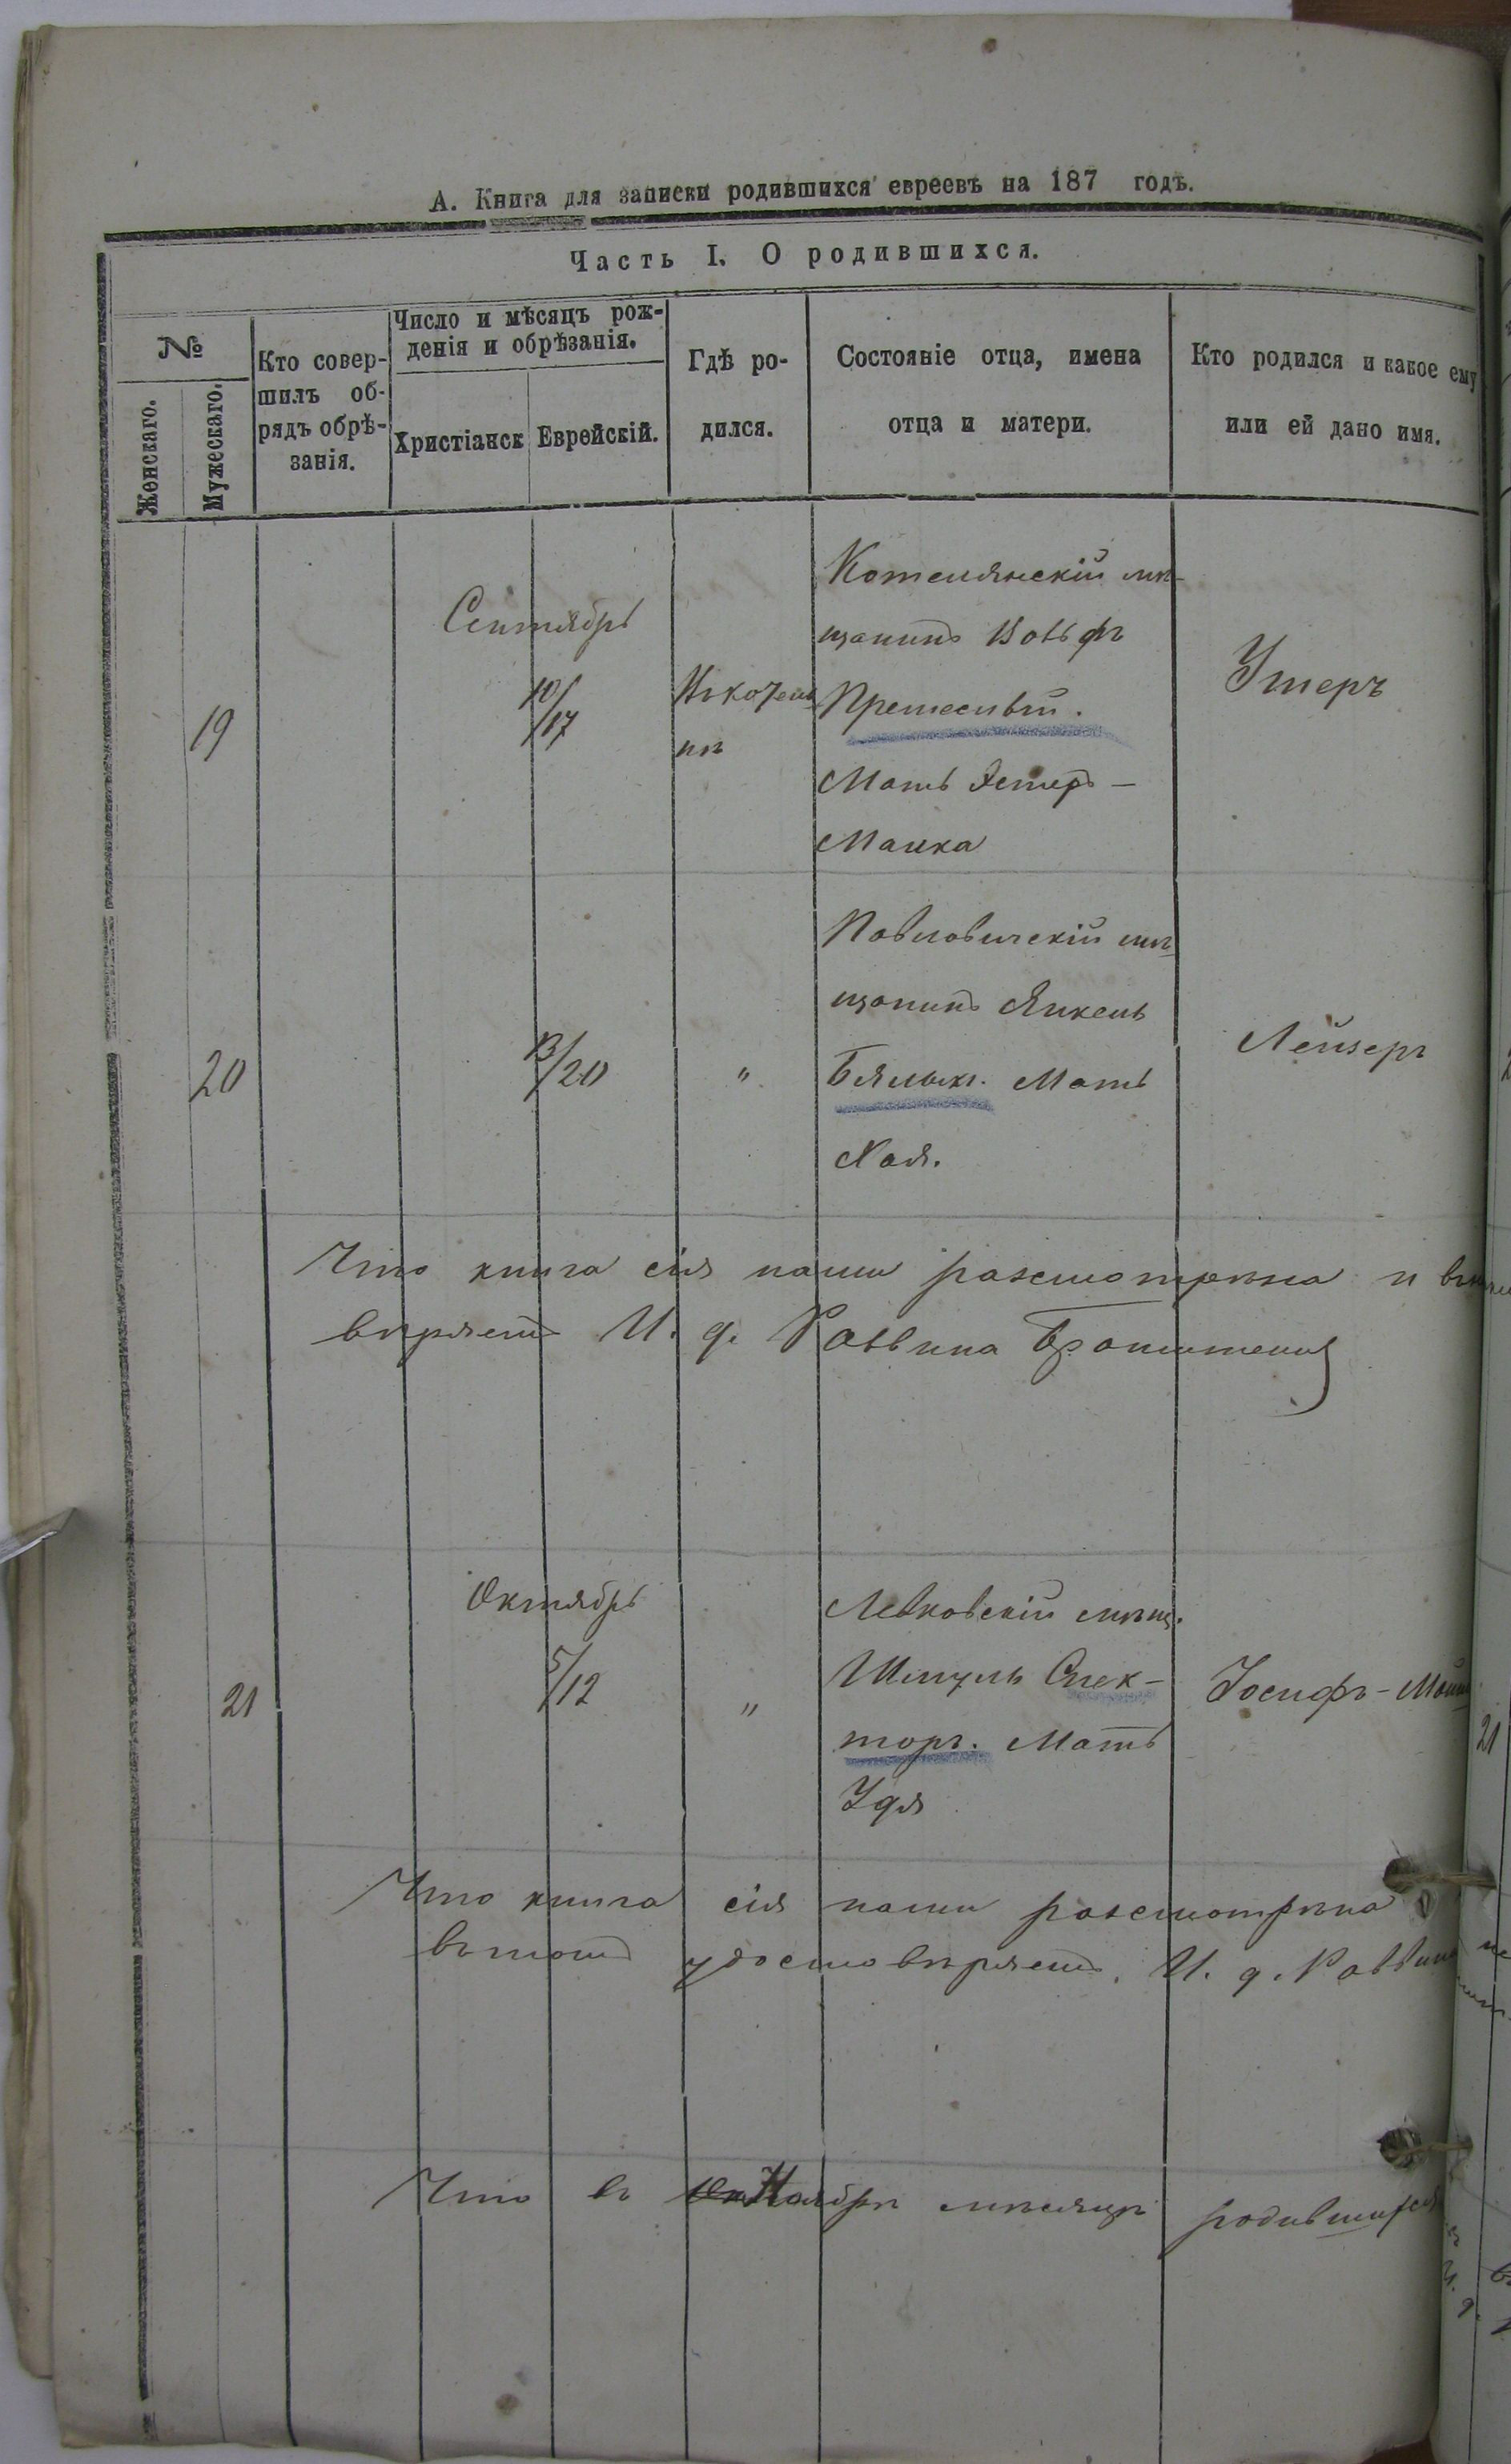 А. Книга для записки родившихся евреевъ на 187 годъ.
Часть I. О родившихся.
№
Женскаго.
Мужескаго.
Кто совер-
шилъ об-
рядъ обрѣ-
занія.
Число и мѣсяцъ рож-
денія и обрѣзанія.
Христіанск
Еврейскій.
Гдѣ ро-
дился.
Состояніе отца, имена
отца и матери.
Кто родился и какое ему
или ей дано имя.
19
Сентябрь
10/17
Котелянскій мѣ-
щанинъ Вольфъ
Мать Эстеръ-
Малка
Умеръ
20
13/20
"
Паволочскій мѣ
щанинъ Янкель
Мать
Хая.
Лейзеръ
Что книга сія нами разсмотрѣна и
вѣряетъ И. д. Раввина
21
Октябрь
5/12
"
Левковскій мѣщ.
Шмуль Спек-
торъ. Мать
Удя
Іосифъ-
Что книга сія нами разсмотрѣна
въ томъ удостовѣряетъ. И. д. Раввина
Что въ Ноябрѣ мѣсяцѣ родившихся
21